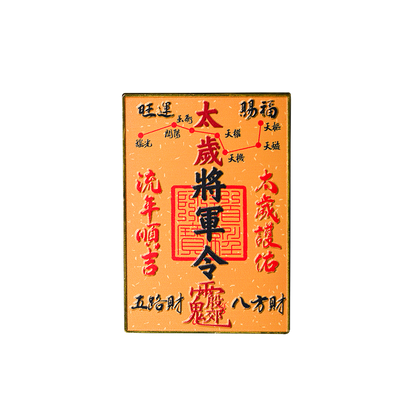 旺運
賜福
太歲將軍令
瑤光
開陽
玉衡
天權
天機
天樞
天璇
流年順吉
太歲護佑
五路財
八方財